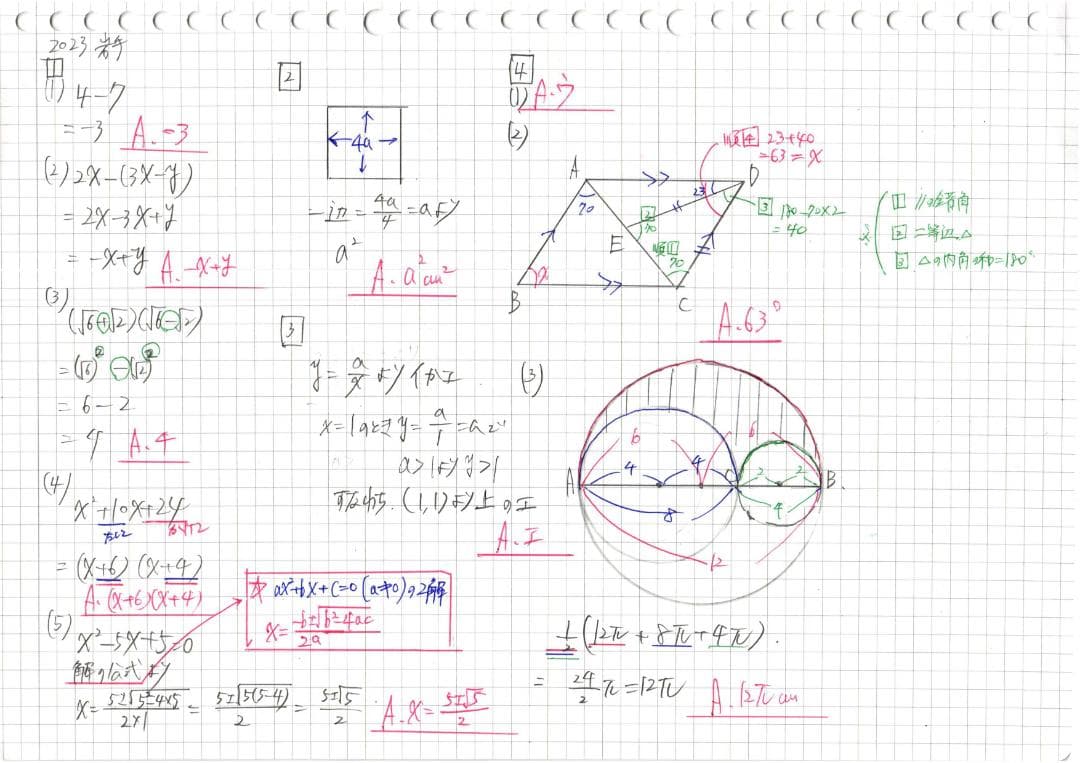 2023 岩手
1
(1) 4-7
= -3 A. -3
(2) 2x-(3x-y)
= 2x-3x+y
= -x+y A. -x+y
(3)
(√6+√2)(√6-√2)
= (√6)²-(√2)²
= 6-2
= 4 A. 4
(4)
x²+10x+24
たして かけて
= (x+6)(x+4)
A. (x+6)(x+4)
(5)
x²-5x+5=0
解の公式より
x= 5±√5²-4×5 / 2×1 = 5±√5(5-4) / 2 = 5±√5 / 2 A. x= 5±√5 / 2
☆ ax²+bx+c=0 (a≠0)の2解
x= -b±√b²-4ac / 2a
2
4a
一辺= 4a/4 =aより
a²
A. a²cm²
3
y= a/x より イかエ
x=1のときy= a/1 =aで
a>1よりy>1
すなわち、(1,1)より上のエ
A. エ
4
(1) A. ウ
(2)
順4 23+40
=63=x
A
D
23
70
2
70
3 180-70×2
=40
E
順1
70
B
x
C
※
1 //の錯角
2 二等辺△
3 △の内角の和=180°
A. 63°
(3)
6 6
4 4 2 2
A B
8 4
12
1/2 (12π+8π+4π)
= 24/2 π=12π A. 12π cm